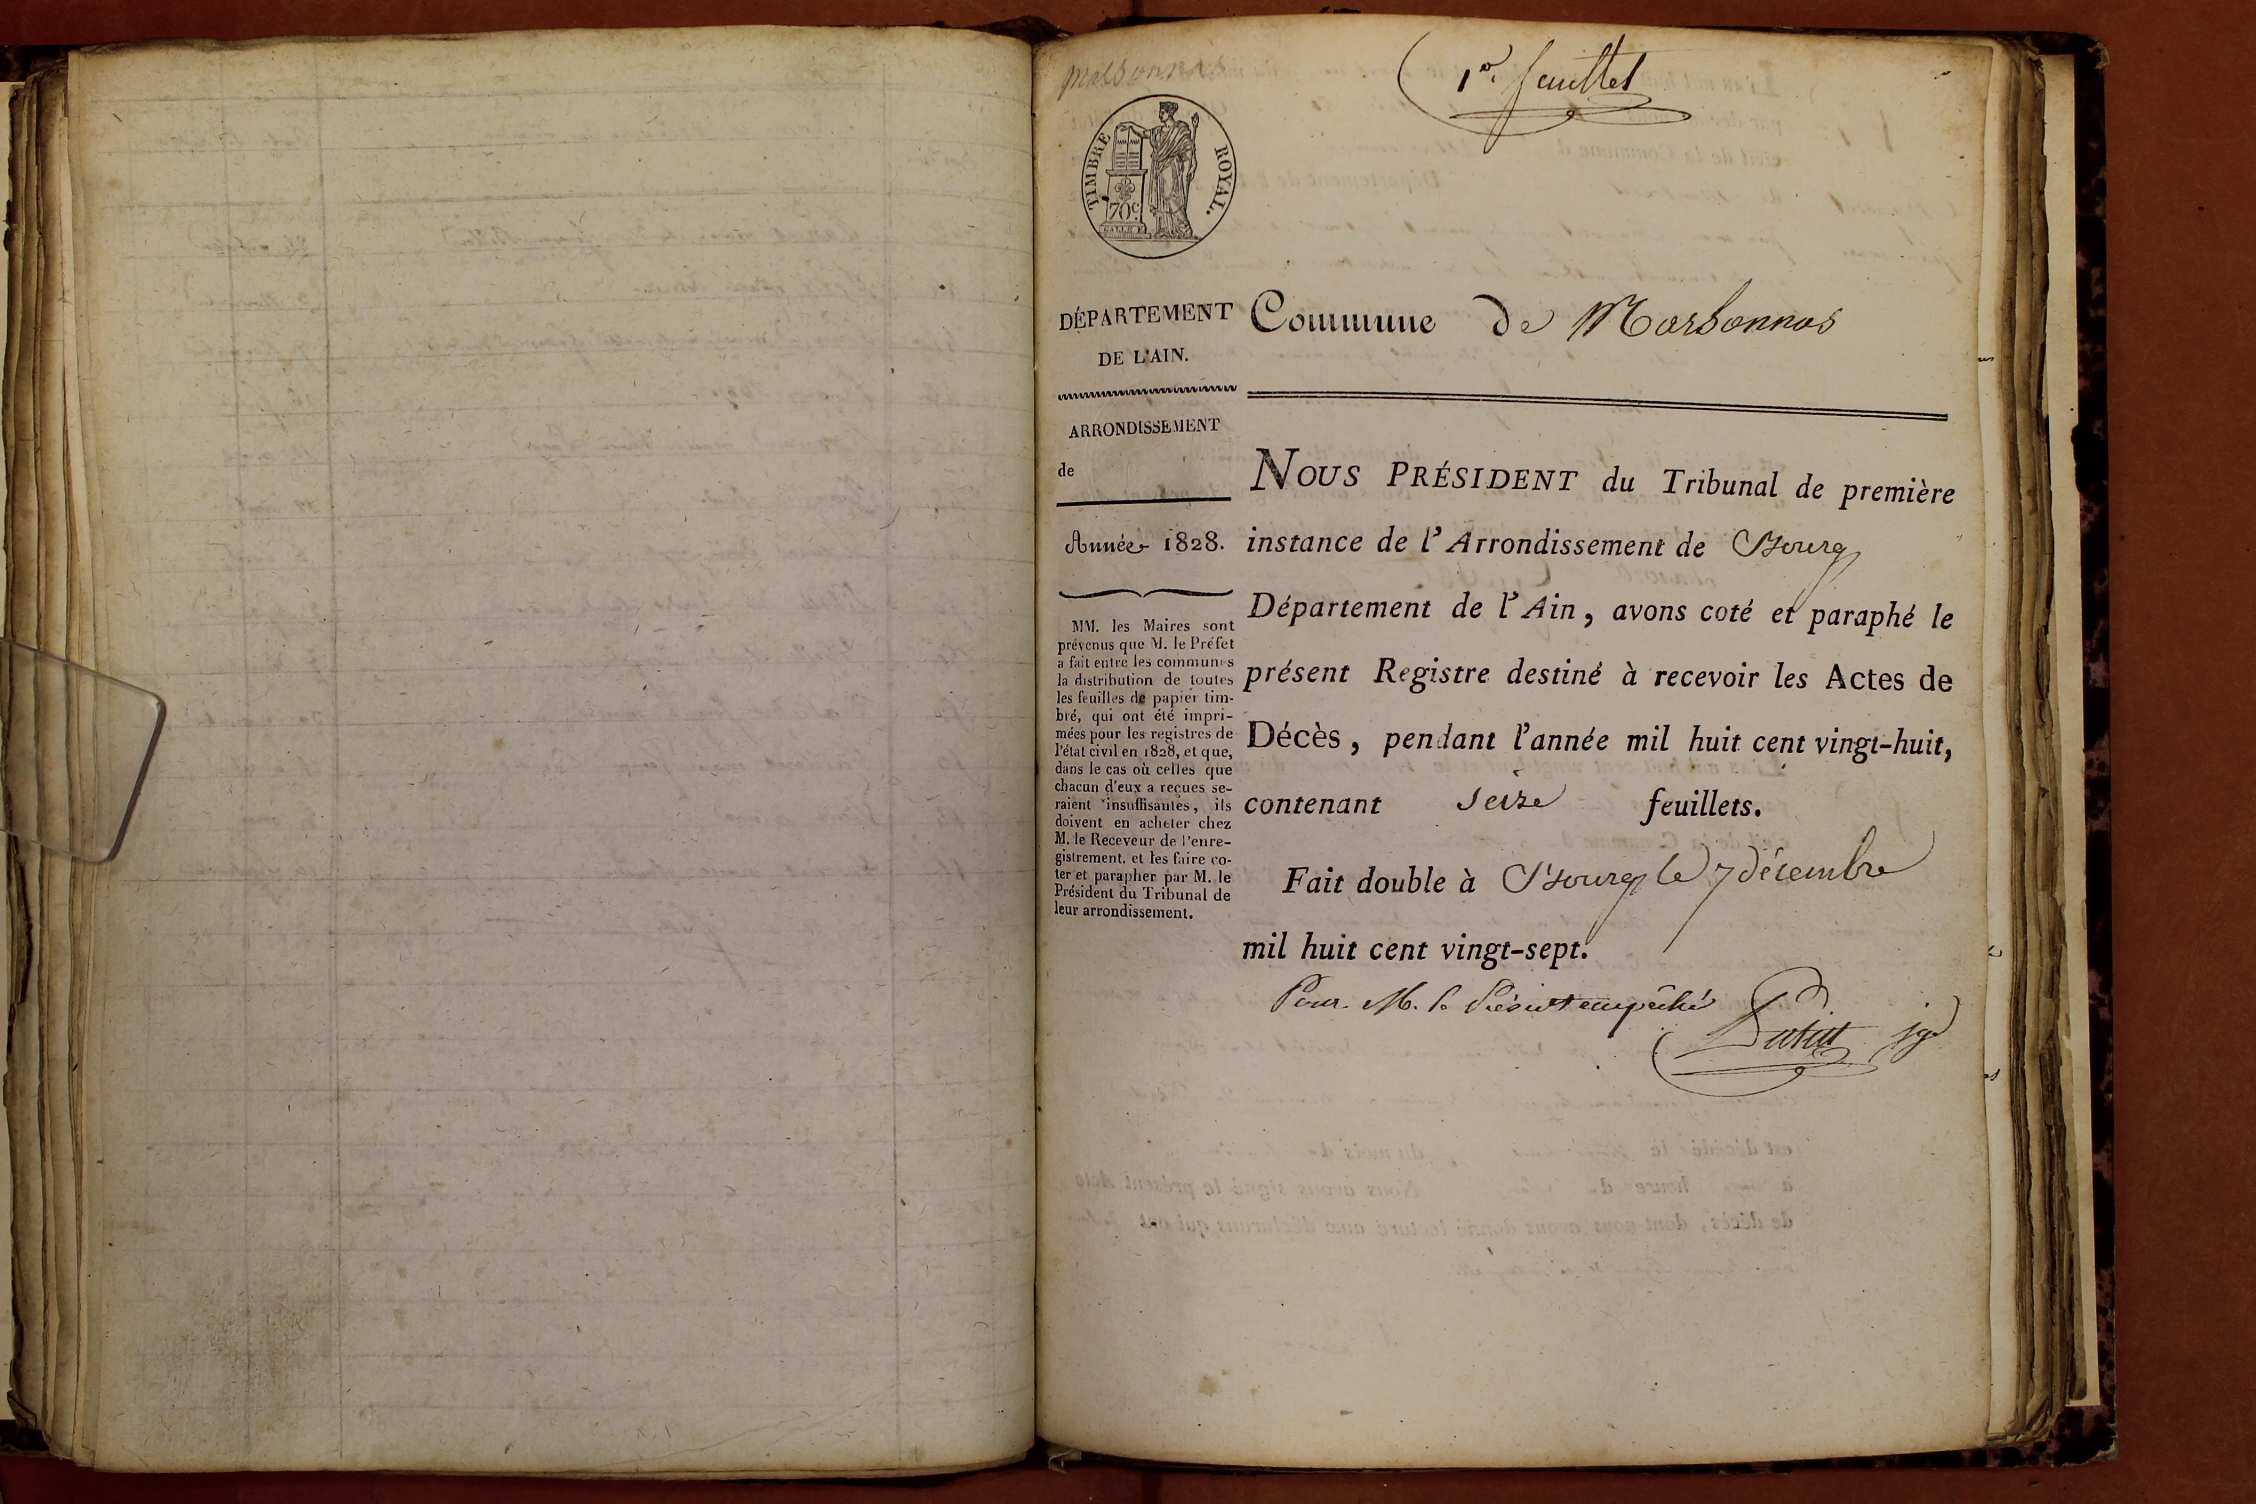 1er feuillet
TIMBRE ROYAL.
70c
DÉPARTEMENT
DE L'AIN.
ARRONDISSEMENT
de
Année 1828.
MM. les Maires sont
prévenus que M. le Préfet
a fait entre les communes
la distribution de toutes
les feuilles de papier tim-
bré, qui ont été impri-
mées pour les registres de
l'état civil en 1828, et que,
dans le cas où celles que
chacun d'eux a reçues se-
raient insuffisantes, ils
doivent en acheter chez
M. le Receveur de l'enre-
gistrement, et les faire co-
ter et parapher par M. le
Président du Tribunal de
leur arrondissement.
Commune de Marbonnas
NOUS PRÉSIDENT du Tribunal de première
instance de l'Arrondissement de Bourg
Département de l'Ain, avons coté et paraphé le
présent Registre destiné à recevoir les Actes de
Décès, pendant l'année mil huit cent vingt-huit,
contenant seize feuillets.
Fait double à Bourg le 7 décembre
mil huit cent vingt-sept.
Pour M. le Présidt empêché